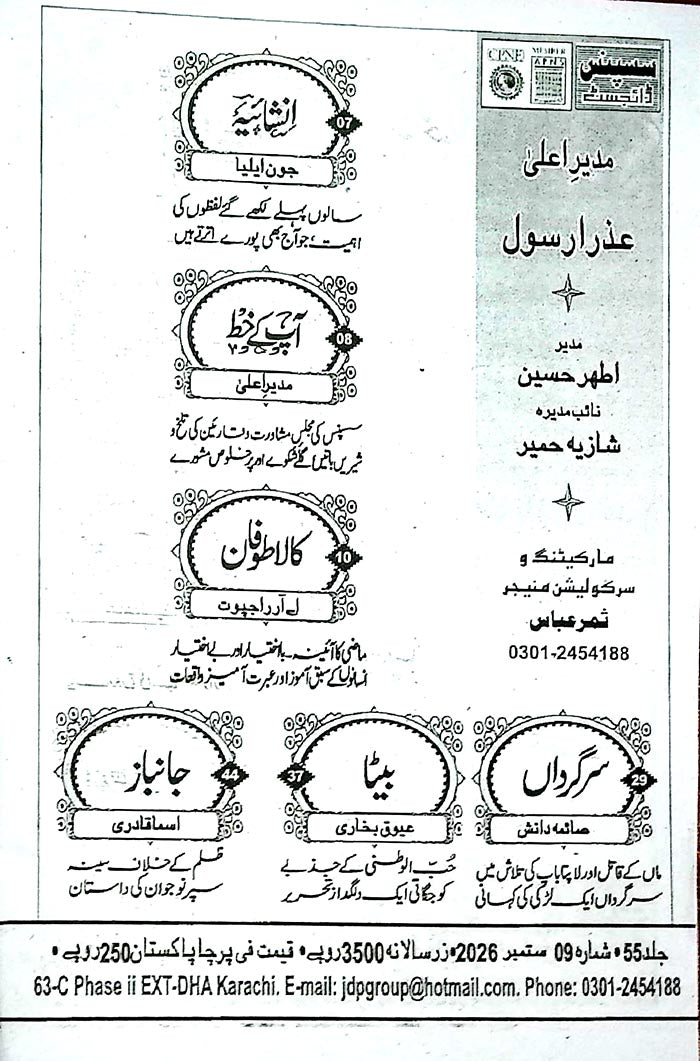 سسپنس
ڈائجسٹ
MEMBER
APNS
CPNE
مدیرِ اعلیٰ
عذرا رسول
مدیر
اطہر حسین
نائب مدیرہ
شازیہ حمیر
مارکیٹنگ و
سرکولیشن منیجر
ثمر عباس
0301-2454188
انشائیہ
07
جون ایلیا
سالوں پہلے لکھے گئے لفظوں کی
اہمیت، جو آج بھی پورے اترتے ہیں
آپ کے خط
08
مدیرِ اعلیٰ
سسپنس کی مجلسِ مشاورت، قارئین کی تلخ و
شیریں باتیں، گلے شکوے اور پر خلوص مشورے
کالا طوفان
10
اے آر راجپوت
ماضی کا آئینہ بااختیار اور بے اختیار
انسانوں کے سبق آموز اور عبرت آمیز واقعات
سرگرداں
29
صائمہ دانش
ماں کے قاتل اور لاپتا باپ کی تلاش میں
سرگرداں ایک لڑکی کی کہانی
بیٹا
37
عیوق بخاری
حُبّ الوطنی کے جذبے
کو جگاتی ایک دلگداز تحریر
جانباز
44
اسما قادری
ظلم کے خلاف سینہ
سپر نوجوان کی داستان
جلد 55 • شمارہ 09 ستمبر 2026 • زرِ سالانہ 3500 روپے • قیمت فی پرچا پاکستان 250 روپے •
63-C Phase ii EXT-DHA Karachi. E-mail: jdpgroup@hotmail.com. Phone: 0301-2454188